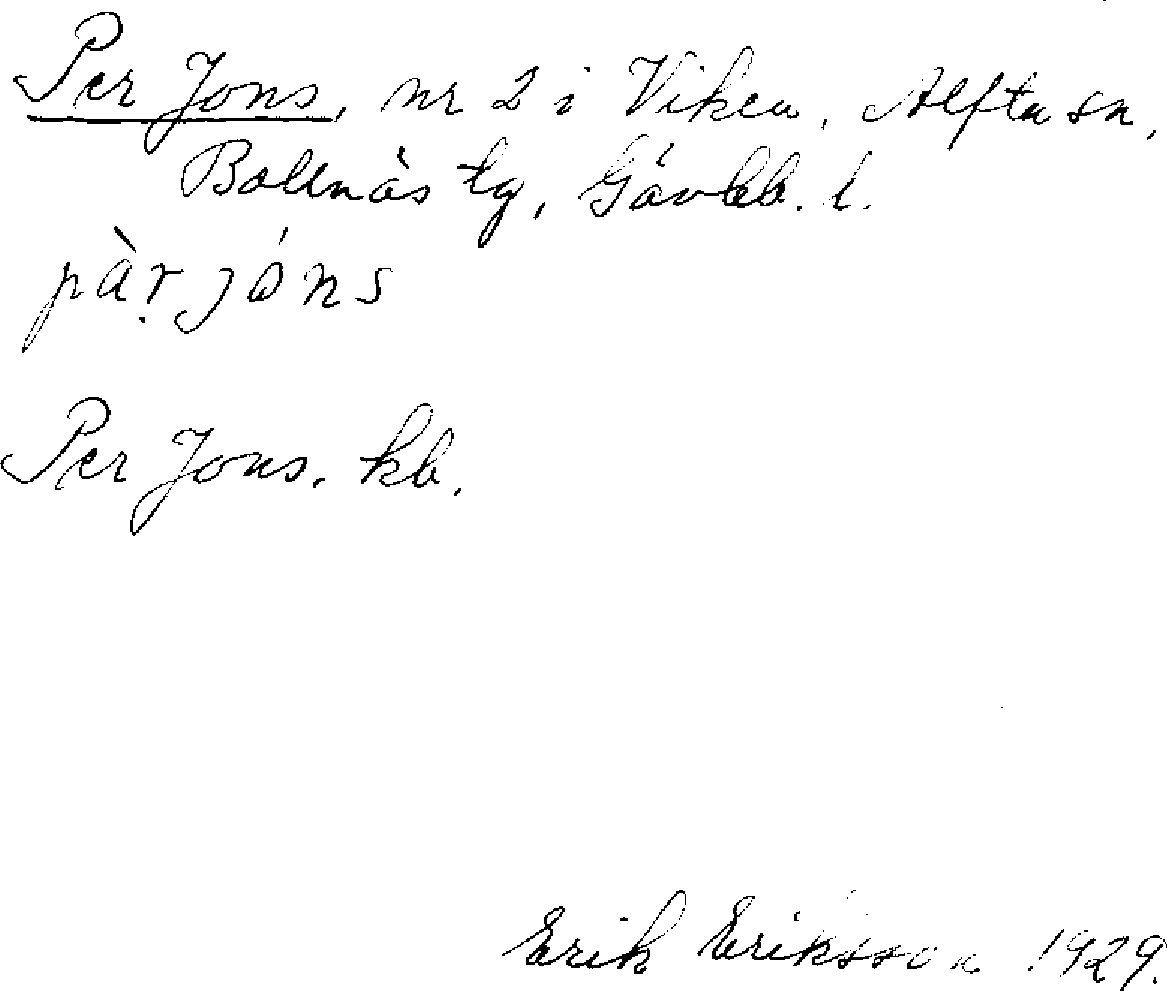 Per Jons, nr 2 i Viken, Alfta sn,
Bollnäs tg, Gävleb. l.
pàṛ jóns
Per Jons. kb.
Erik Eriksson 1929.